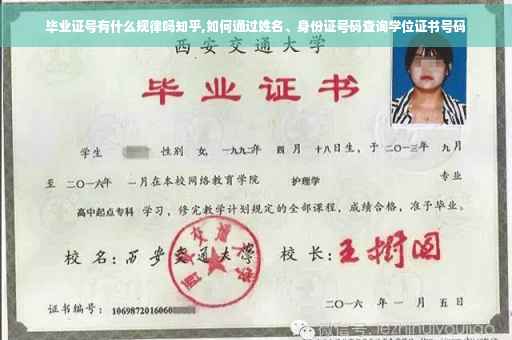 毕业证号有什么规律吗知乎,如何通过姓名、身份证号码查询学位证书号码
西安交通大学
毕业证书
学生 性别 女,一九九二年 四月 十八日生,于二〇一三年 九月
至 二〇一六年 一月在本校网络教育学院 护理学 专业
高中起点专科 学习,修完教学计划规定的全部课程,成绩合格,准予毕业。
校名:西安交通大学 校长:王树国
西安交通大学
证书编号:1069872016060
二〇一六 年 一 月 五 日
微信号:jezhinuiyoujiao